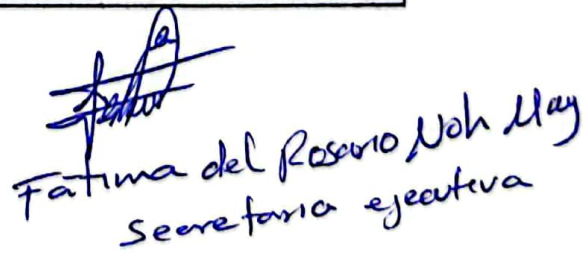 Fatima del Rosario Noh May
Secretaria ejecutiva